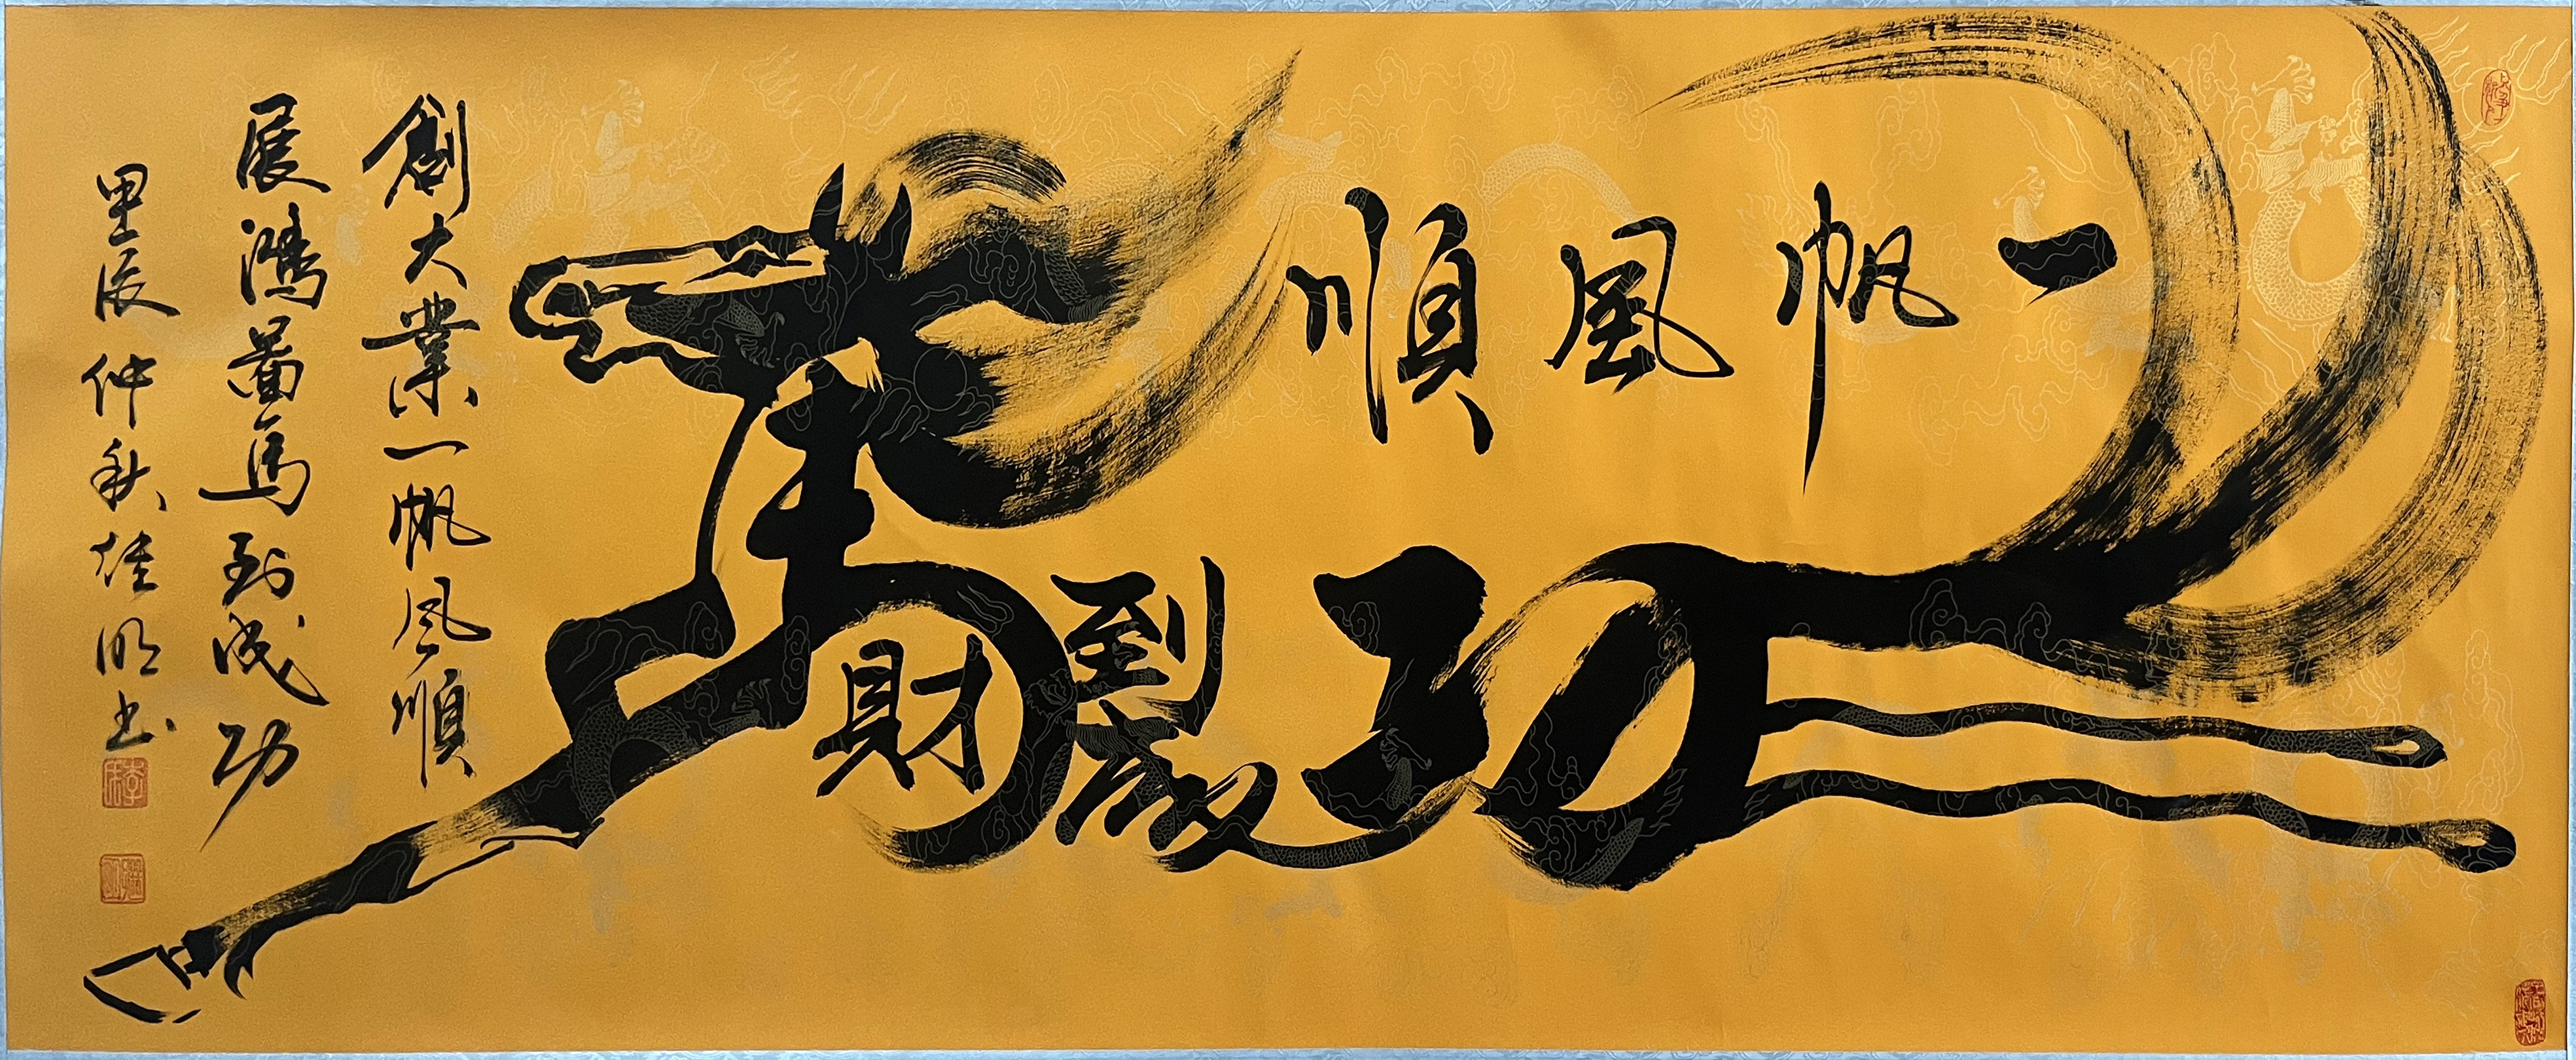 一帆風順
馬到成功
財
創大業一帆风順
展鴻圖馬到成功
甲辰仲秋
明书